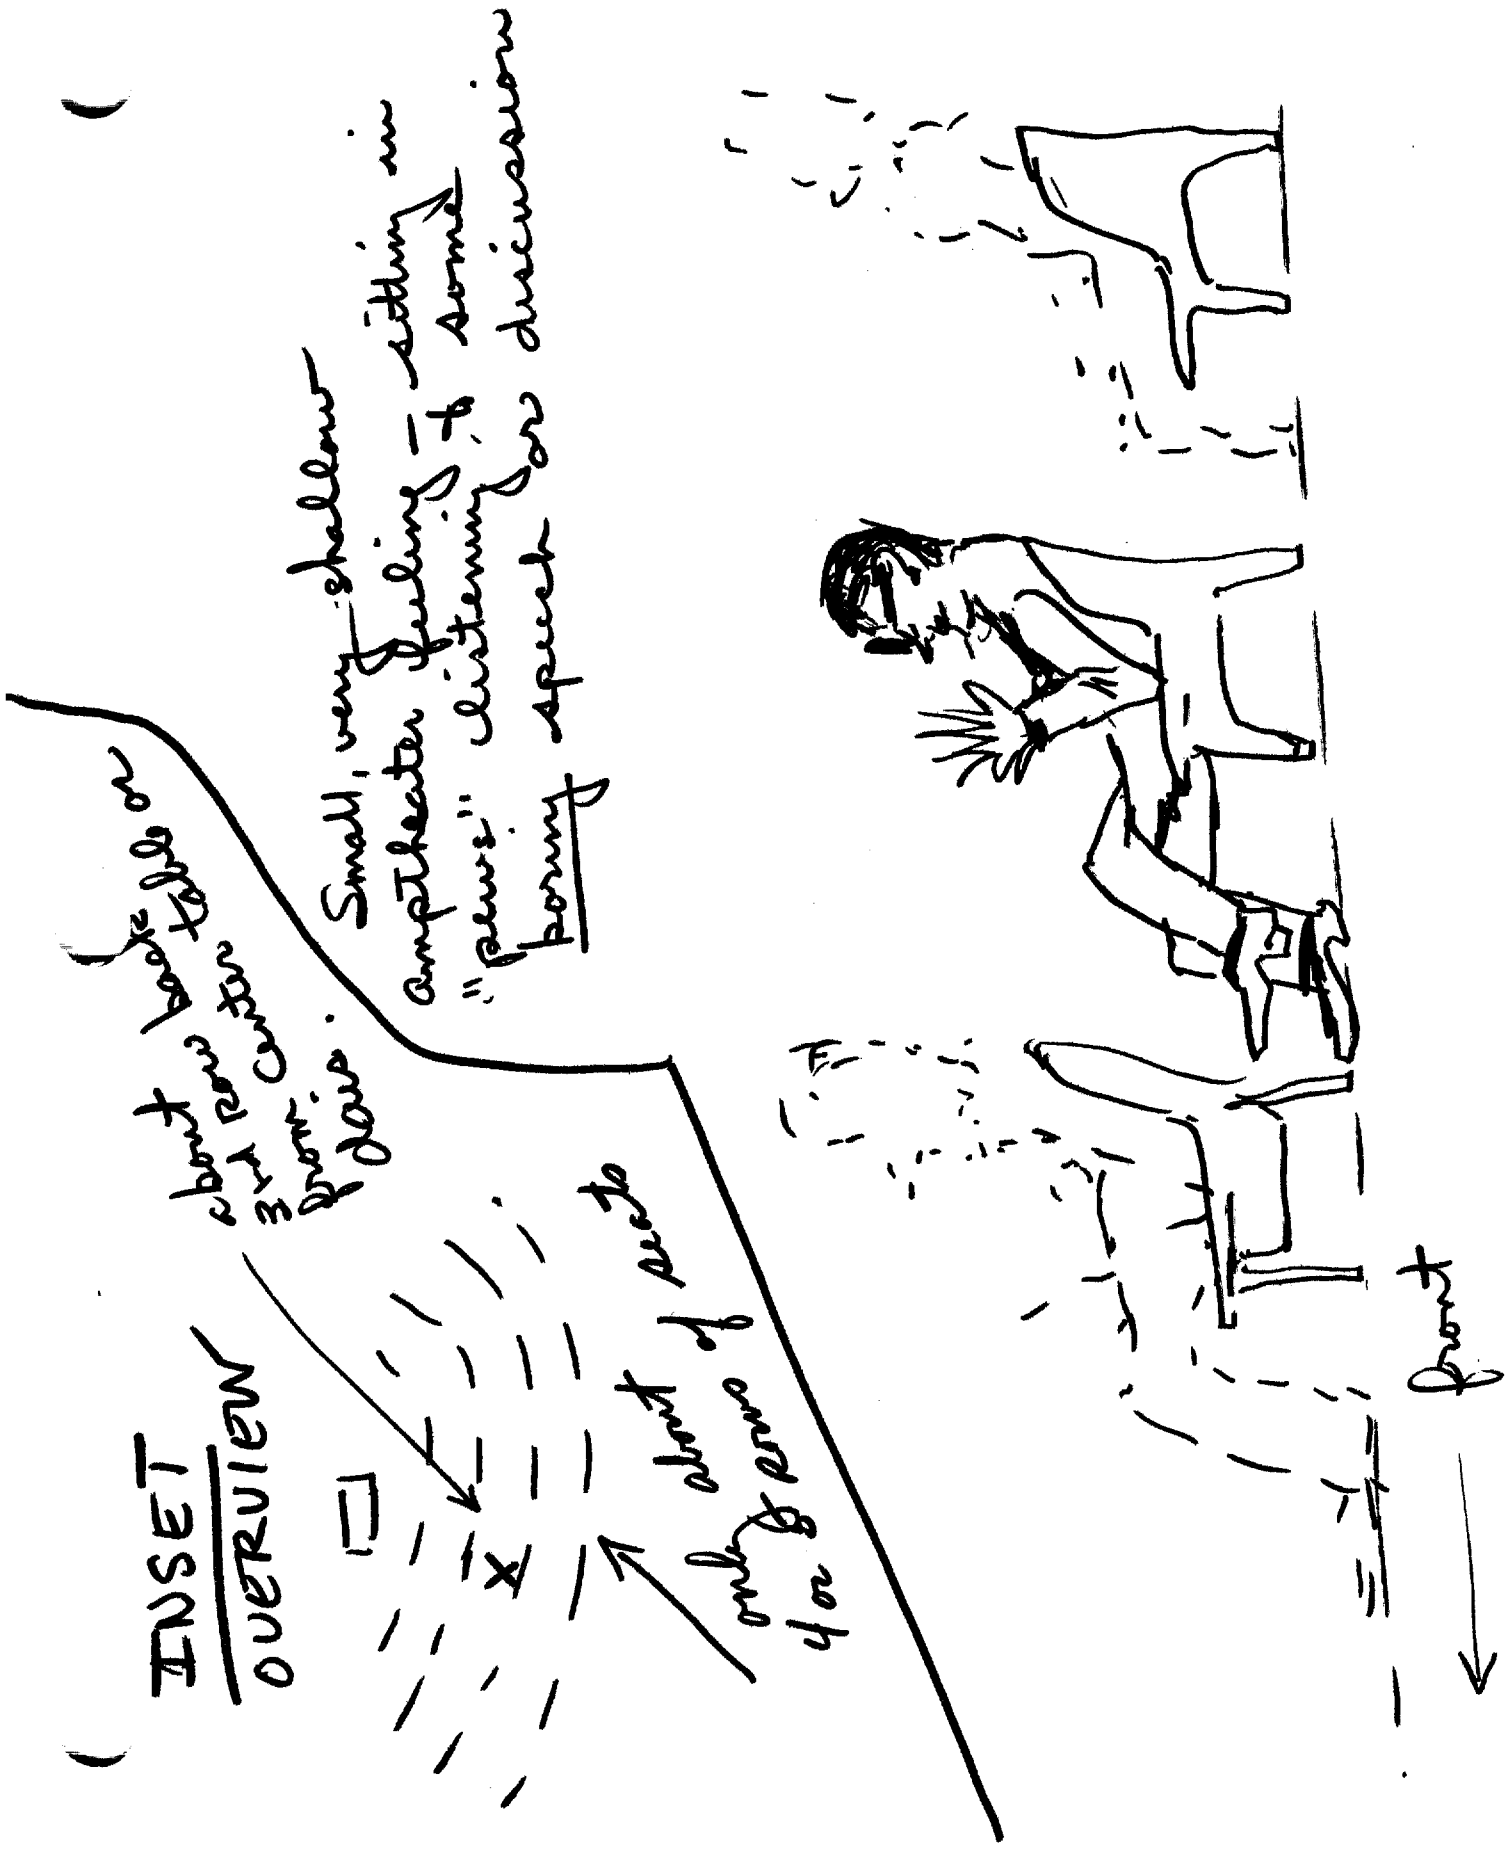 INSET
OVERVIEW
about back
3rd Row table or
from center
glass.
only about
4 or 5 rows of seats
Small, very shallow
ampitheater feeling — sitting in
"pews" listening to some
boring speech or discussion
front